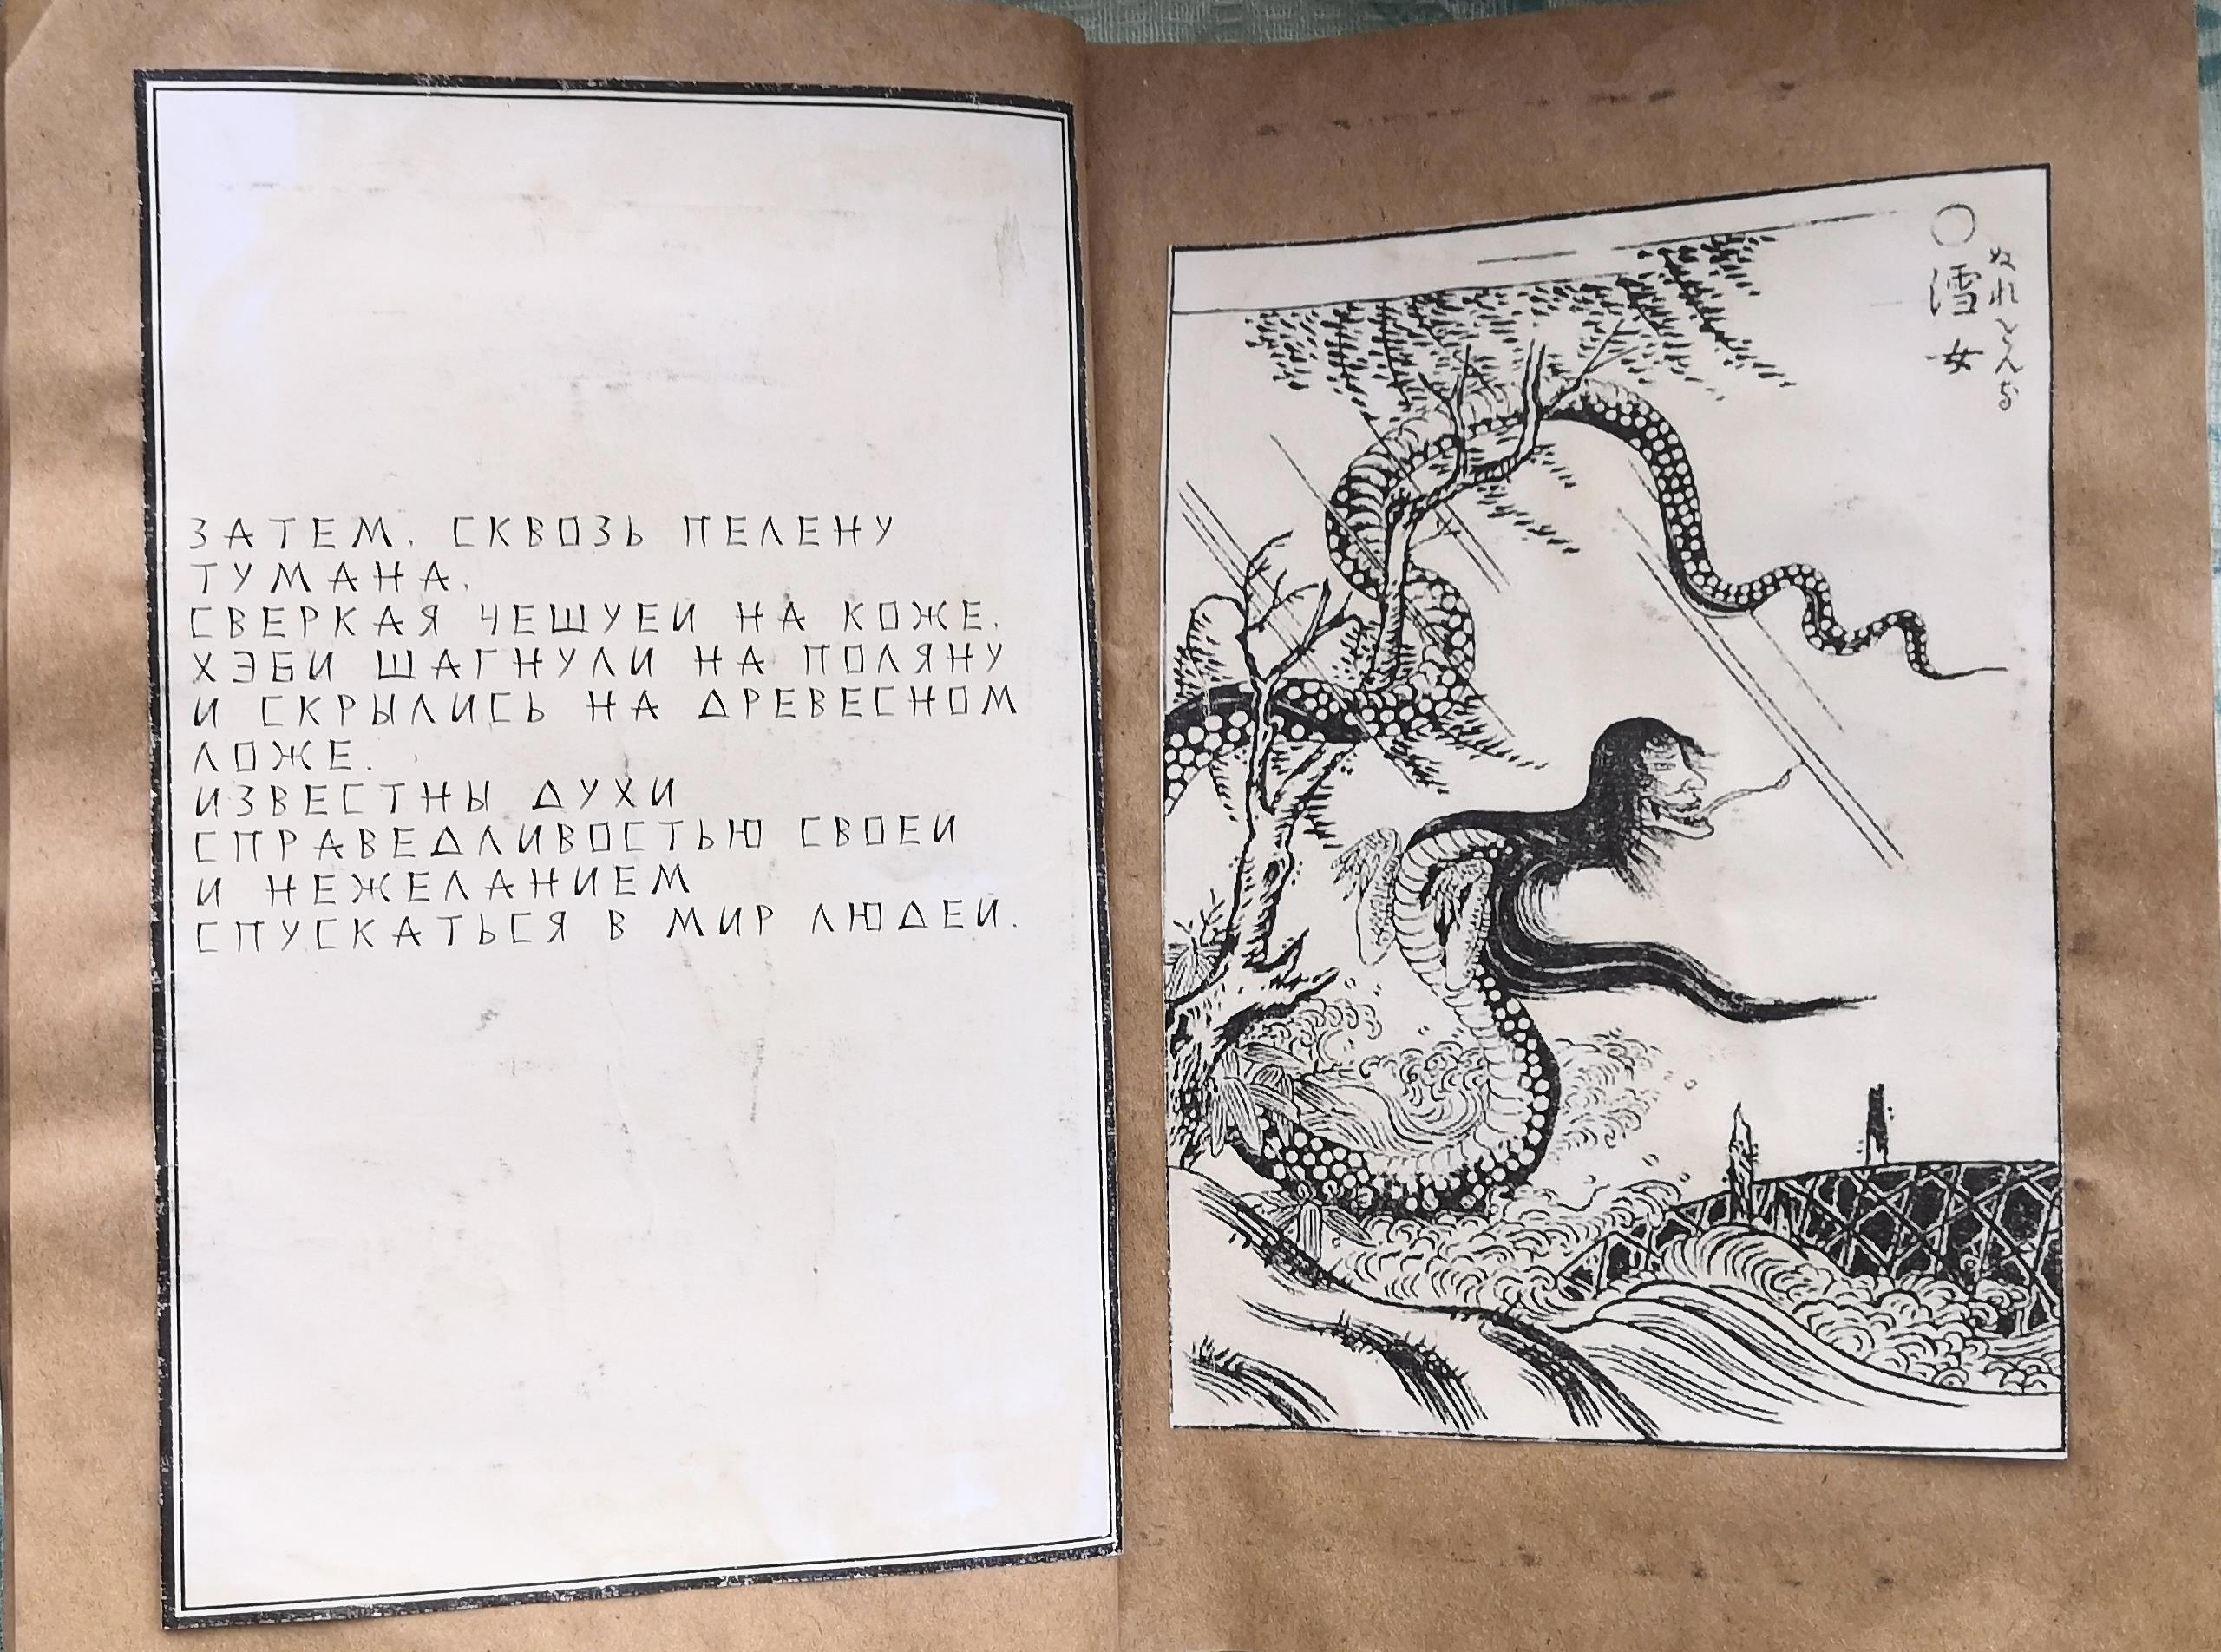 ЗАТЕМ, СКВОЗЬ ПЕЛЕНУ
ТУМАНА,
СВЕРКАЯ ЧЕШУЕЙ НА КОЖЕ,
ХЭБИ ШАГНУЛИ НА ПОЛЯНУ
И СКРЫЛИСЬ НА ДРЕВЕСНОМ
ЛОЖЕ.
ИЗВЕСТНЫ ДУХИ
СПРАВЕДЛИВОСТЬЮ СВОЕЙ
И НЕЖЕЛАНИЕМ
СПУСКАТЬСЯ В МИР ЛЮДЕЙ.
ぬれをんな